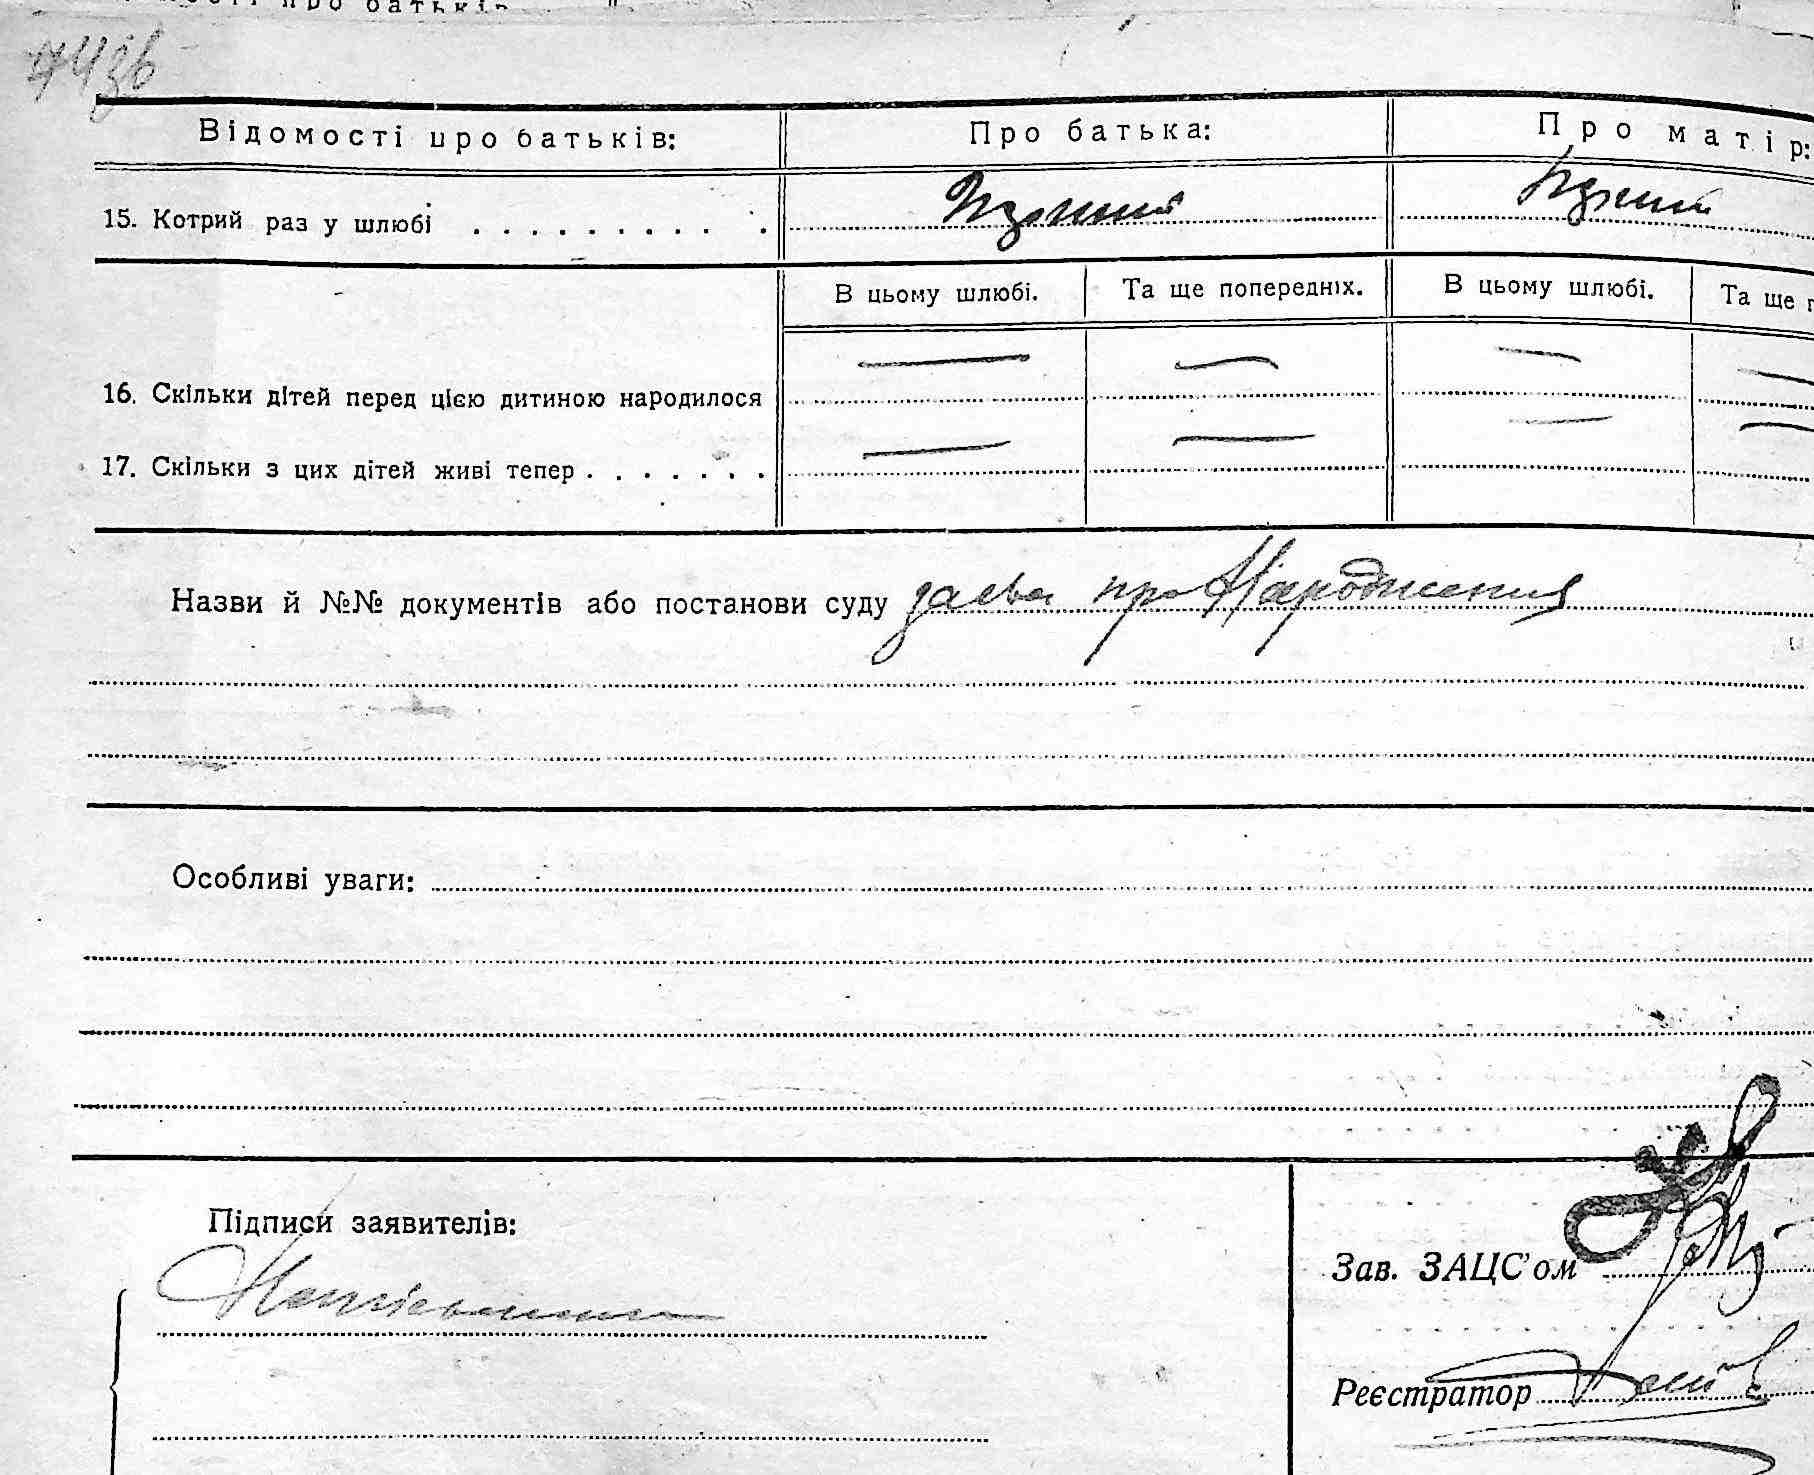 74зв
Відомості про батьків: Про батька: Про матір:
15. Котрий раз у шлюбі . . . . . . . . . .
В цьому шлюбі. Та ще попередніх. В цьому шлюбі. Та ще
16. Скільки дітей перед цією дитиною народилося — — — —
17. Скільки з цих дітей живі тепер . . . . . . . — — — —
Назви й №№ документів або постанови суду заява про народження
Особливі уваги:
Підписи заявителів:
Зав. ЗАЦС'ом
Реєстратор